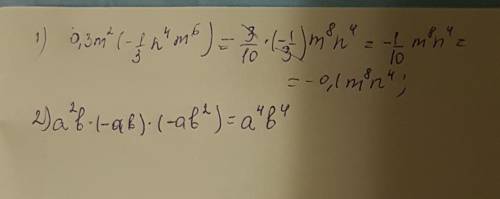 1) 0,3m²(-1/3 n⁴m⁶) = 3/10 · (-1/3) m⁸n⁴ = -1/10 m⁸n⁴ =
= -0,1m⁸n⁴;
2) a²b · (-ab) · (-ab²) = a⁴b⁴